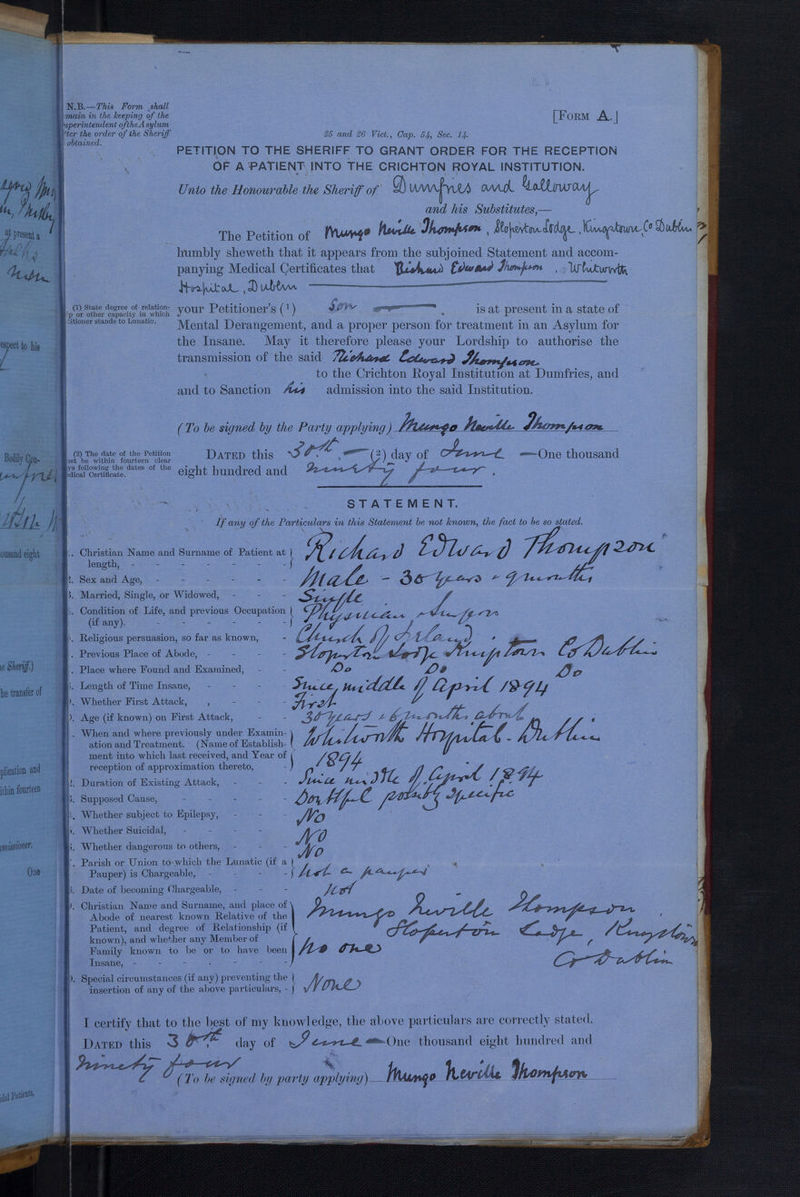 N.B.—This Form shall
main in the keeping of the
uperintendent of the Asylum
ter the order of the Sheriff
obtained.
[FORM A.]
25 and 26 Vict., Cap. 54, Sec. 14.
PETITION TO THE SHERIFF TO GRANT ORDER FOR THE RECEPTION
OF A PATIENT INTO THE CRICHTON ROYAL INSTITUTION.
Unto the Honourable the Sheriff of Dumfries and Galloway
and his Substitutes,—
The Petition of Mungo Neville Thompson, Sloperton Lodge, Kingstown, Co Dublin
humbly sheweth that it appears from the subjoined Statement and accom-
panying Medical Certificates that Richard Edward Thompson, Whitworth
Hospital, Dublin
(1) State degree of relation-
p or other capacity in which
titioner stands to Lunatic.
your Petitioner's (1) Son is at present in a state of
Mental Derangement, and a proper person for treatment in an Asylum for
the Insane. May it therefore please your Lordship to authorise the
transmission of the said Richard Edward Thompson
to the Crichton Royal Institution at Dumfries, and
and to Sanction his admission into the said Institution.
(To be signed by the Party applying) Mungo Neville Thompson
(2) The date of the Petition
ust be within fourteen clear
ys following the dates of the
edical Certificate.
DATED this 30th (2) day of June —One thousand
eight hundred and ninety four.
STATEMENT.
If any of the Particulars in this Statement be not known, the fact to be so stated.
. Christian Name and Surname of Patient at
length, - Richard Edward Thompson
2. Sex and Age, - Male - 30 years + 9 months
3. Married, Single, or Widowed, - Single
. Condition of Life, and previous Occupation
(if any). - Physician + Surgeon
. Religious persuasion, so far as known, - Church of Ireland
. Previous Place of Abode, - Sloperton Lodge Kingstown Co Dublin
. Place where Found and Examined, - Do Do Do
. Length of Time Insane, - Since middle of April 1894
. Whether First Attack, - First
. Age (if known) on First Attack, - 30 years + 6 months about
. When and where previously under Examin-
ation and Treatment. (Name of Establish-
ment into which last received, and Year of
reception of approximation thereto, - Whitworth Hospital - Dublin
1894
. Duration of Existing Attack, - Since middle of April 1894
. Supposed Cause, - Doubtful possibly Specific
. Whether subject to Epilepsy, - No
. Whether Suicidal, - No
. Whether dangerous to others, - No
. Parish or Union to which the Lunatic (if a
Pauper) is Chargeable, - Not a pauper
. Date of becoming Chargeable, - Not
. Christian Name and Surname, and place of
Abode of nearest known Relative of the
Patient, and degree of Relationship (if
known), and whether any Member of
Family known to be or to have been
Insane, - Mungo Neville Thompson,
Sloperton Lodge, Kingstown
No one Co Dublin
. Special circumstances (if any) preventing the
insertion of any of the above particulars, - None
I certify that to the best of my knowledge, the above particulars are correctly stated.
DATED this 30th day of June —One thousand eight hundred and
ninety four
(To be signed by party applying) Mungo Neville Thompson